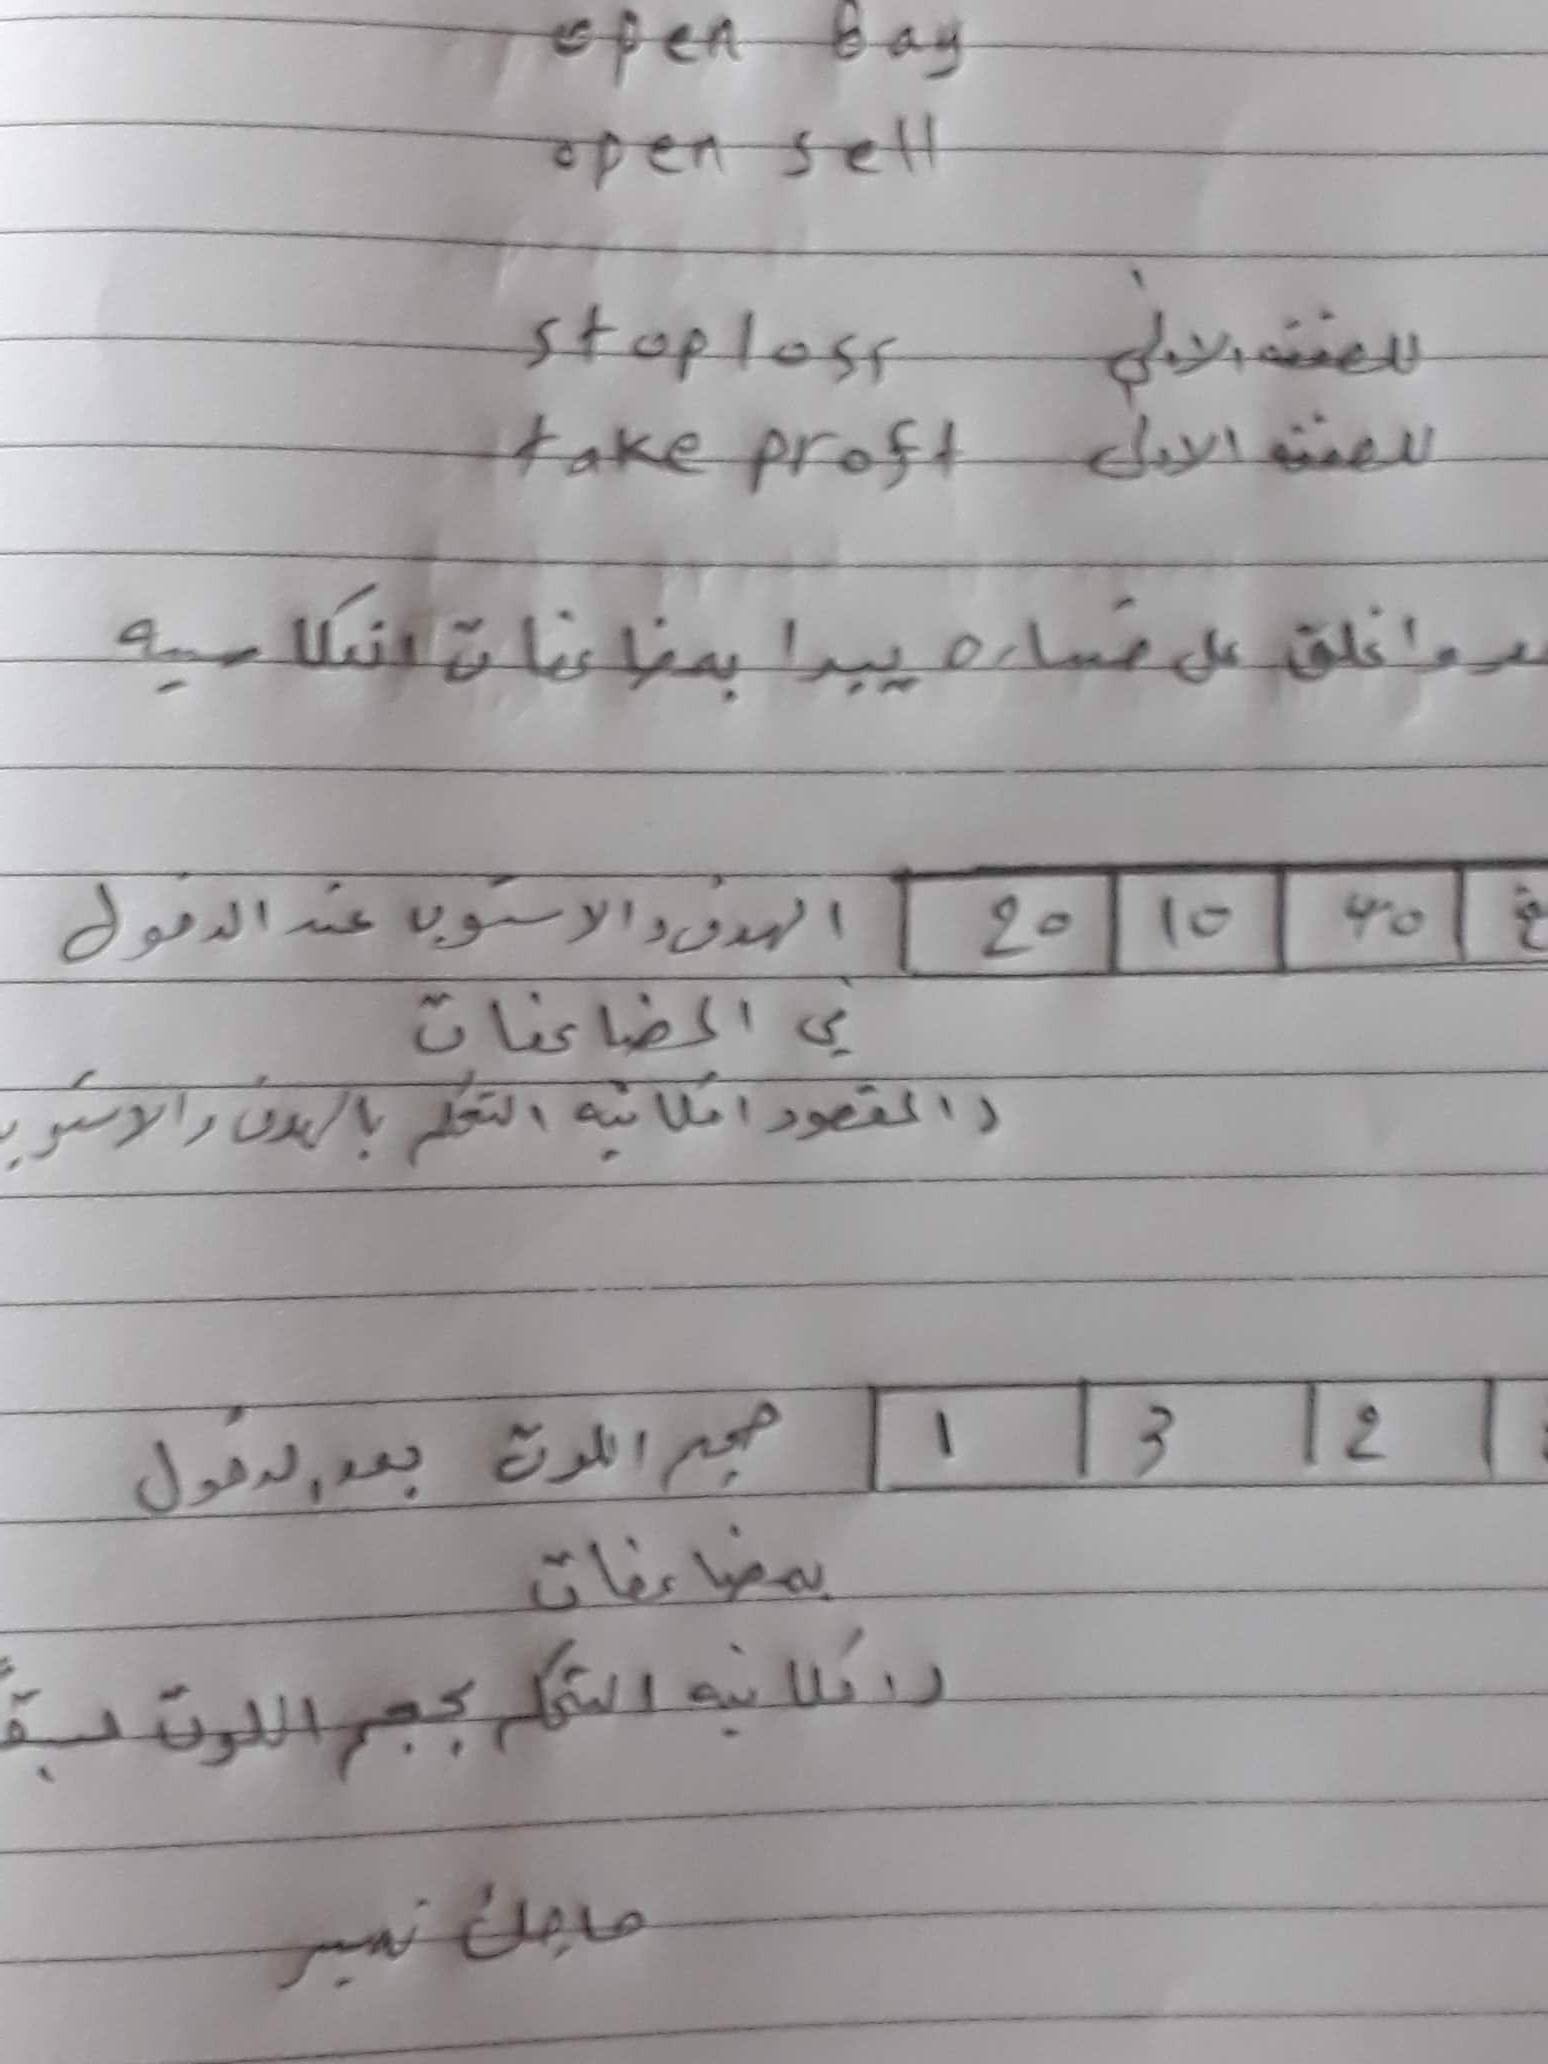 open bay
open sell
stoploss للصفقه الاولي
take proft للصفقه الاولي
واغلق على خساره يبدا بمضاعفات انعكاسيه
الهدف والاستوب عند الدخول 20 10 40
في المضاعفات
والمقصود امكانيه التحكم بالهدف والاستوب
حجم اللوت بعد الدخول 1 3 2
بمضاعفات
وامكانيه التحكم بحجم اللوت